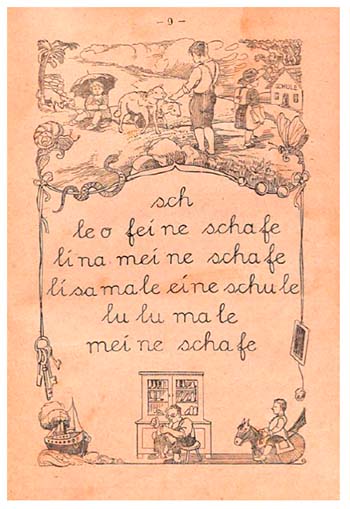 - 9 -
SCHULE
sch
le o fei ne scha fe
li na mei ne scha fe
li sa ma le ei ne schu le
lu lu ma le
mei ne scha fe